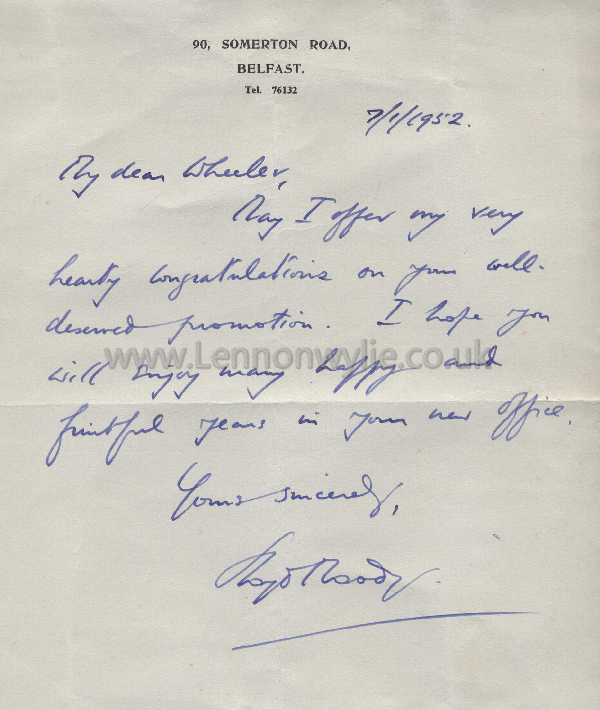 90, SOMERTON ROAD,
BELFAST.
Tel. 76132
7/1/1952.
My dear Wheeler,
May I offer my very
hearty congratulations on your well-
deserved promotion. I hope you
will enjoy many happy and
www.Lennonwylie.co.uk
fruitful years in your new office.
Yours sincerely,
Moody